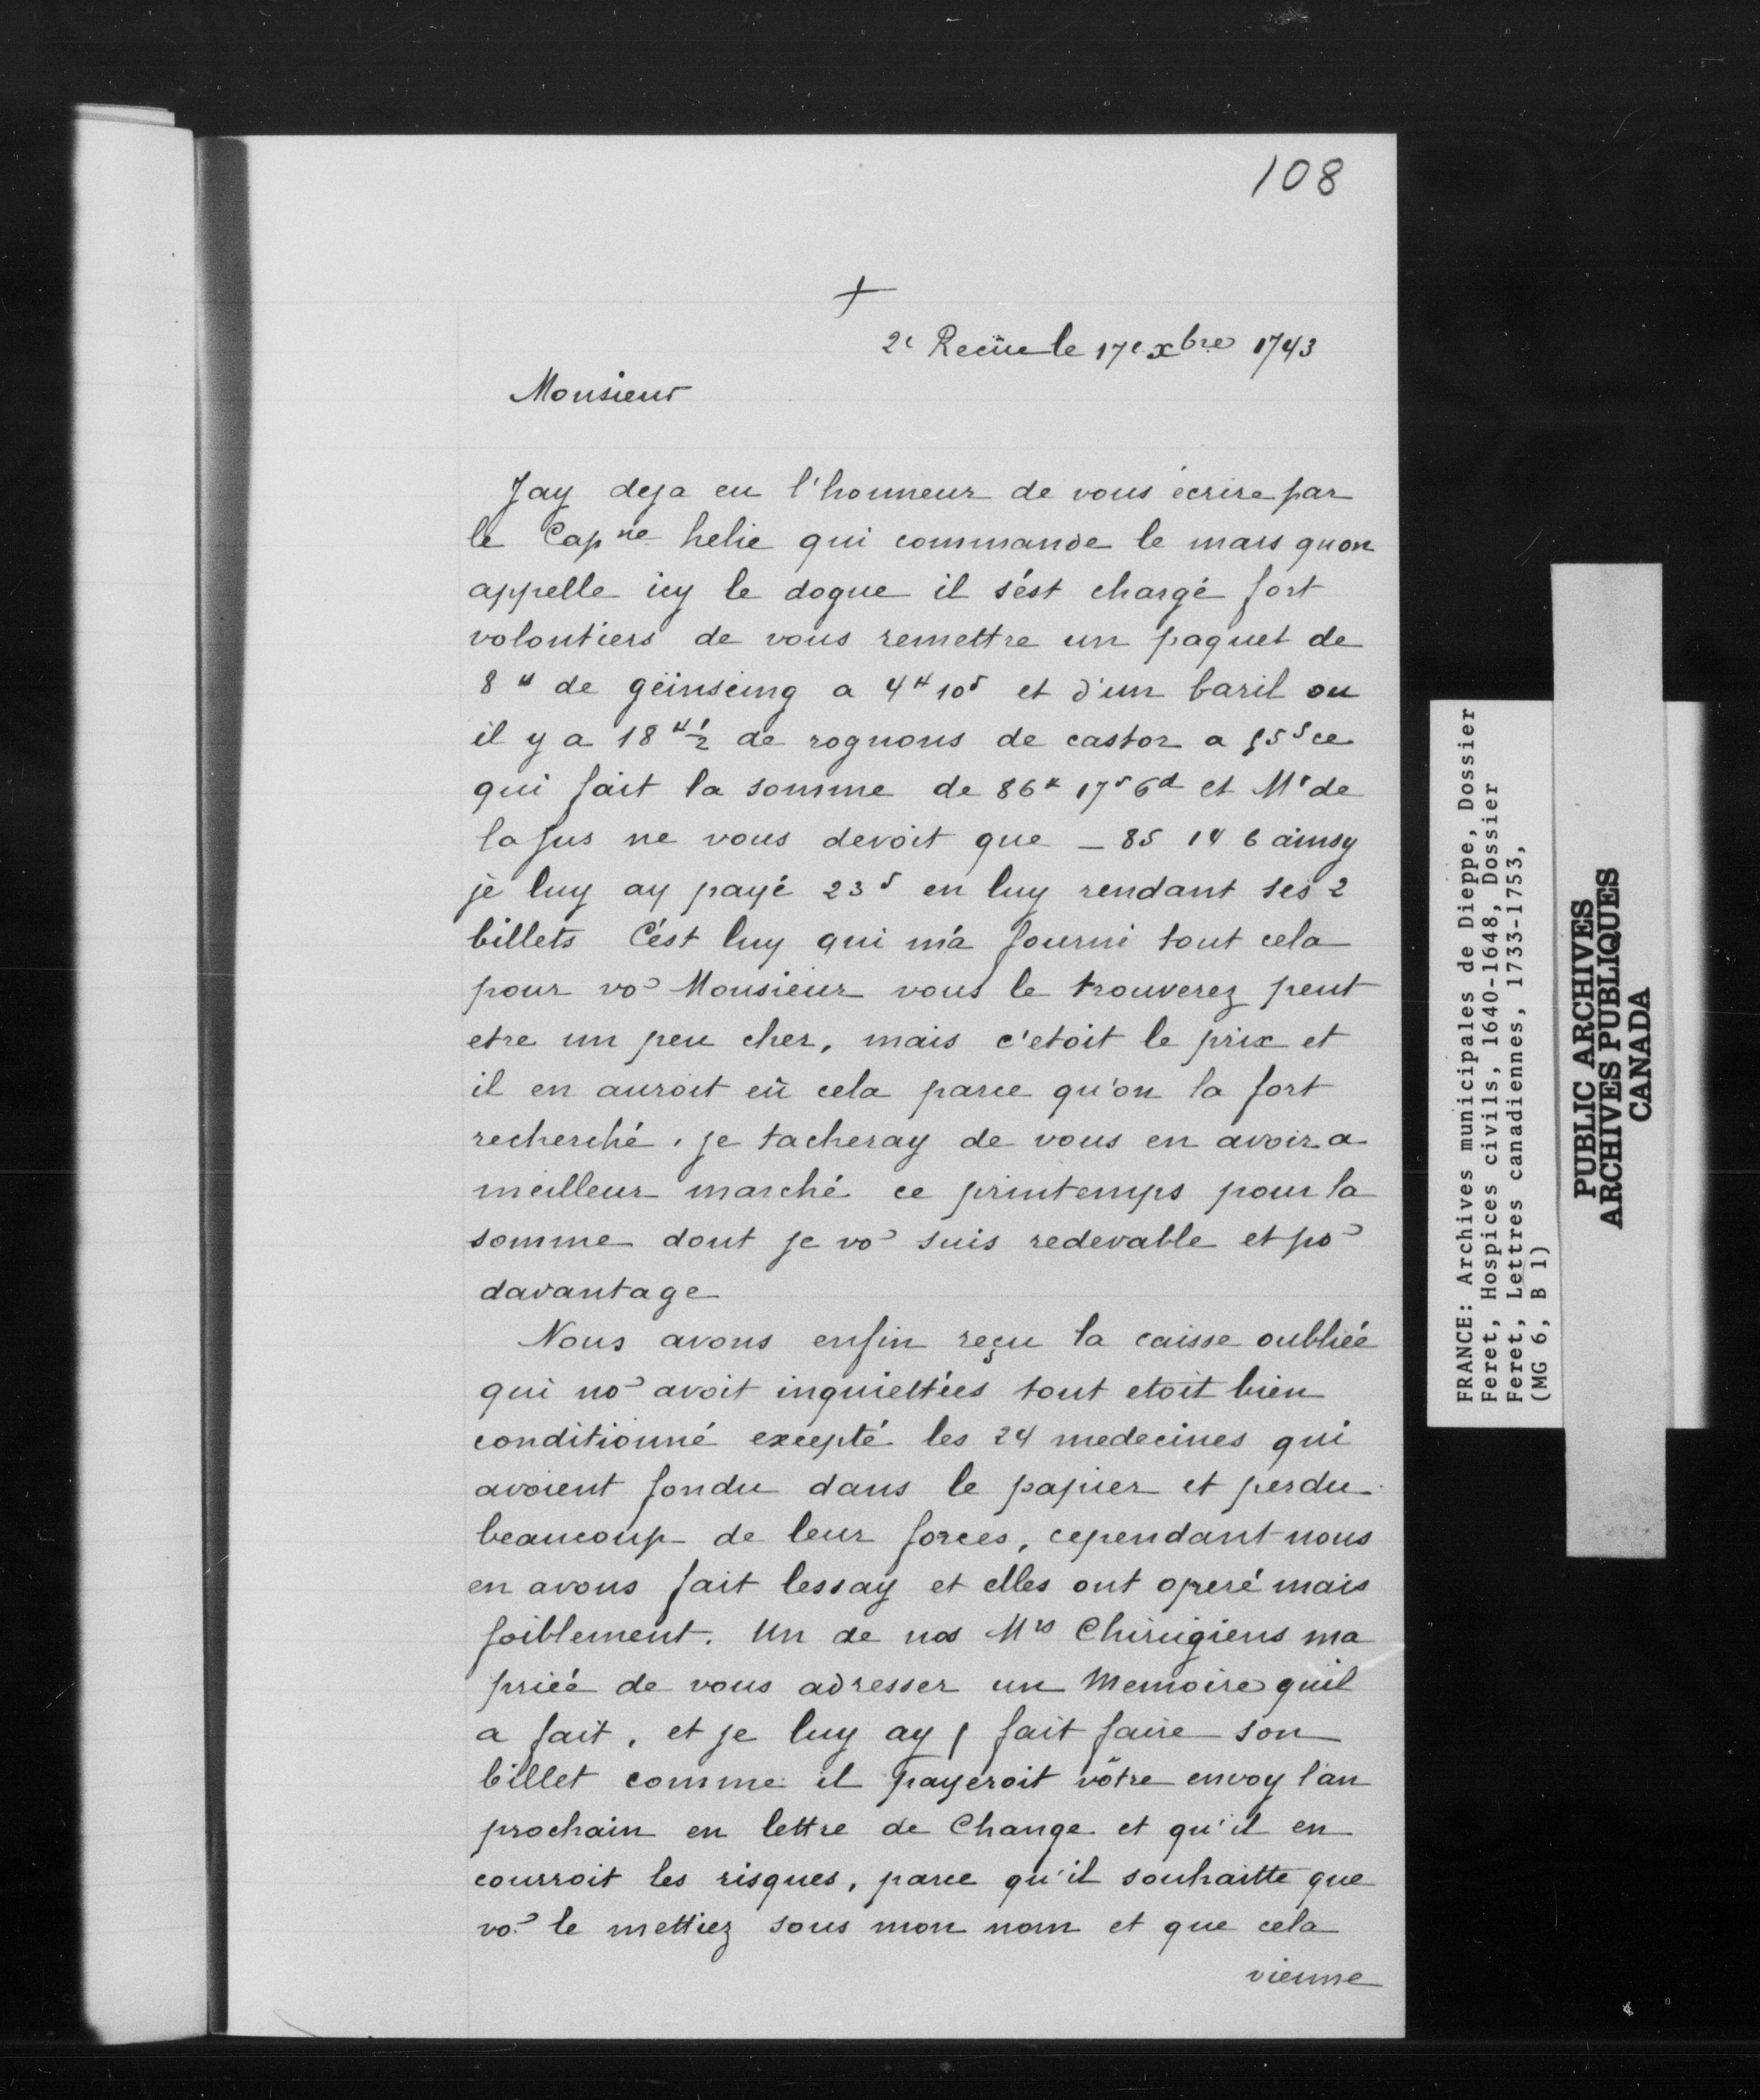 108
+
2e Reçüe le 17e xbre 1743
Monsieur
Jay deja eu l'honneur de vous écrire par
le Capne helie qui commande le mars quon
appelle icy le dogue il s'ést chargé fort
volontiers de vous remettre un paquet de
8 # de geinseing a 4# 10s et d'un baril ou
il y a 18 # 1/2 de rognons de castor a 55s ce
qui fait la somme de 86# 17s 6d et Mr de
lafus ne vous devoit que _ 85 14 6 ainsy
je luy ay payé 23s en luy rendant ses 2
billets C'ést luy qui m'a fourni tout cela
pour vo͗ Monsieur vous le trouverez peut
etre un peu cher, mais c'etoit le prix et
il en auroit eü cela parce qu'on la fort
recherché. je tacheray de vous en avoir a
meilleur marché ce printemps pour la
somme dont je vo͗ suis redevable et po͗
davantage
Nous avons enfin reçu la caisse oubliée
qui no͗ avoit inquiettées tout etoit bien
conditionné excepté les 24 medecines qui
avoient fondu dans le papier et perdu
beaucoup de leur forces, cependant nous
en avons fait lessay et elles ont operé mais
foiblement. Un de nos Mrs Chirugiens ma
priéé de vous adresser un Memoire quil
a fait, et je luy ay fait faire son
billet comme il payeroit vôtre envoy l'an
prochain en lettre de Change et qu'il en
courroit les risques, parce qu'il souhaitte que
vo͗ le mettiez sous mon nom et que cela
vienne
FRANCE: Archives municipales de Dieppe, Dossier
Feret, Hospices civils, 1640-1648, Dossier
Feret, Lettres canadiennes, 1733-1753,
(MG 6, B 1)
PUBLIC ARCHIVES
ARCHIVES PUBLIQUES
CANADA